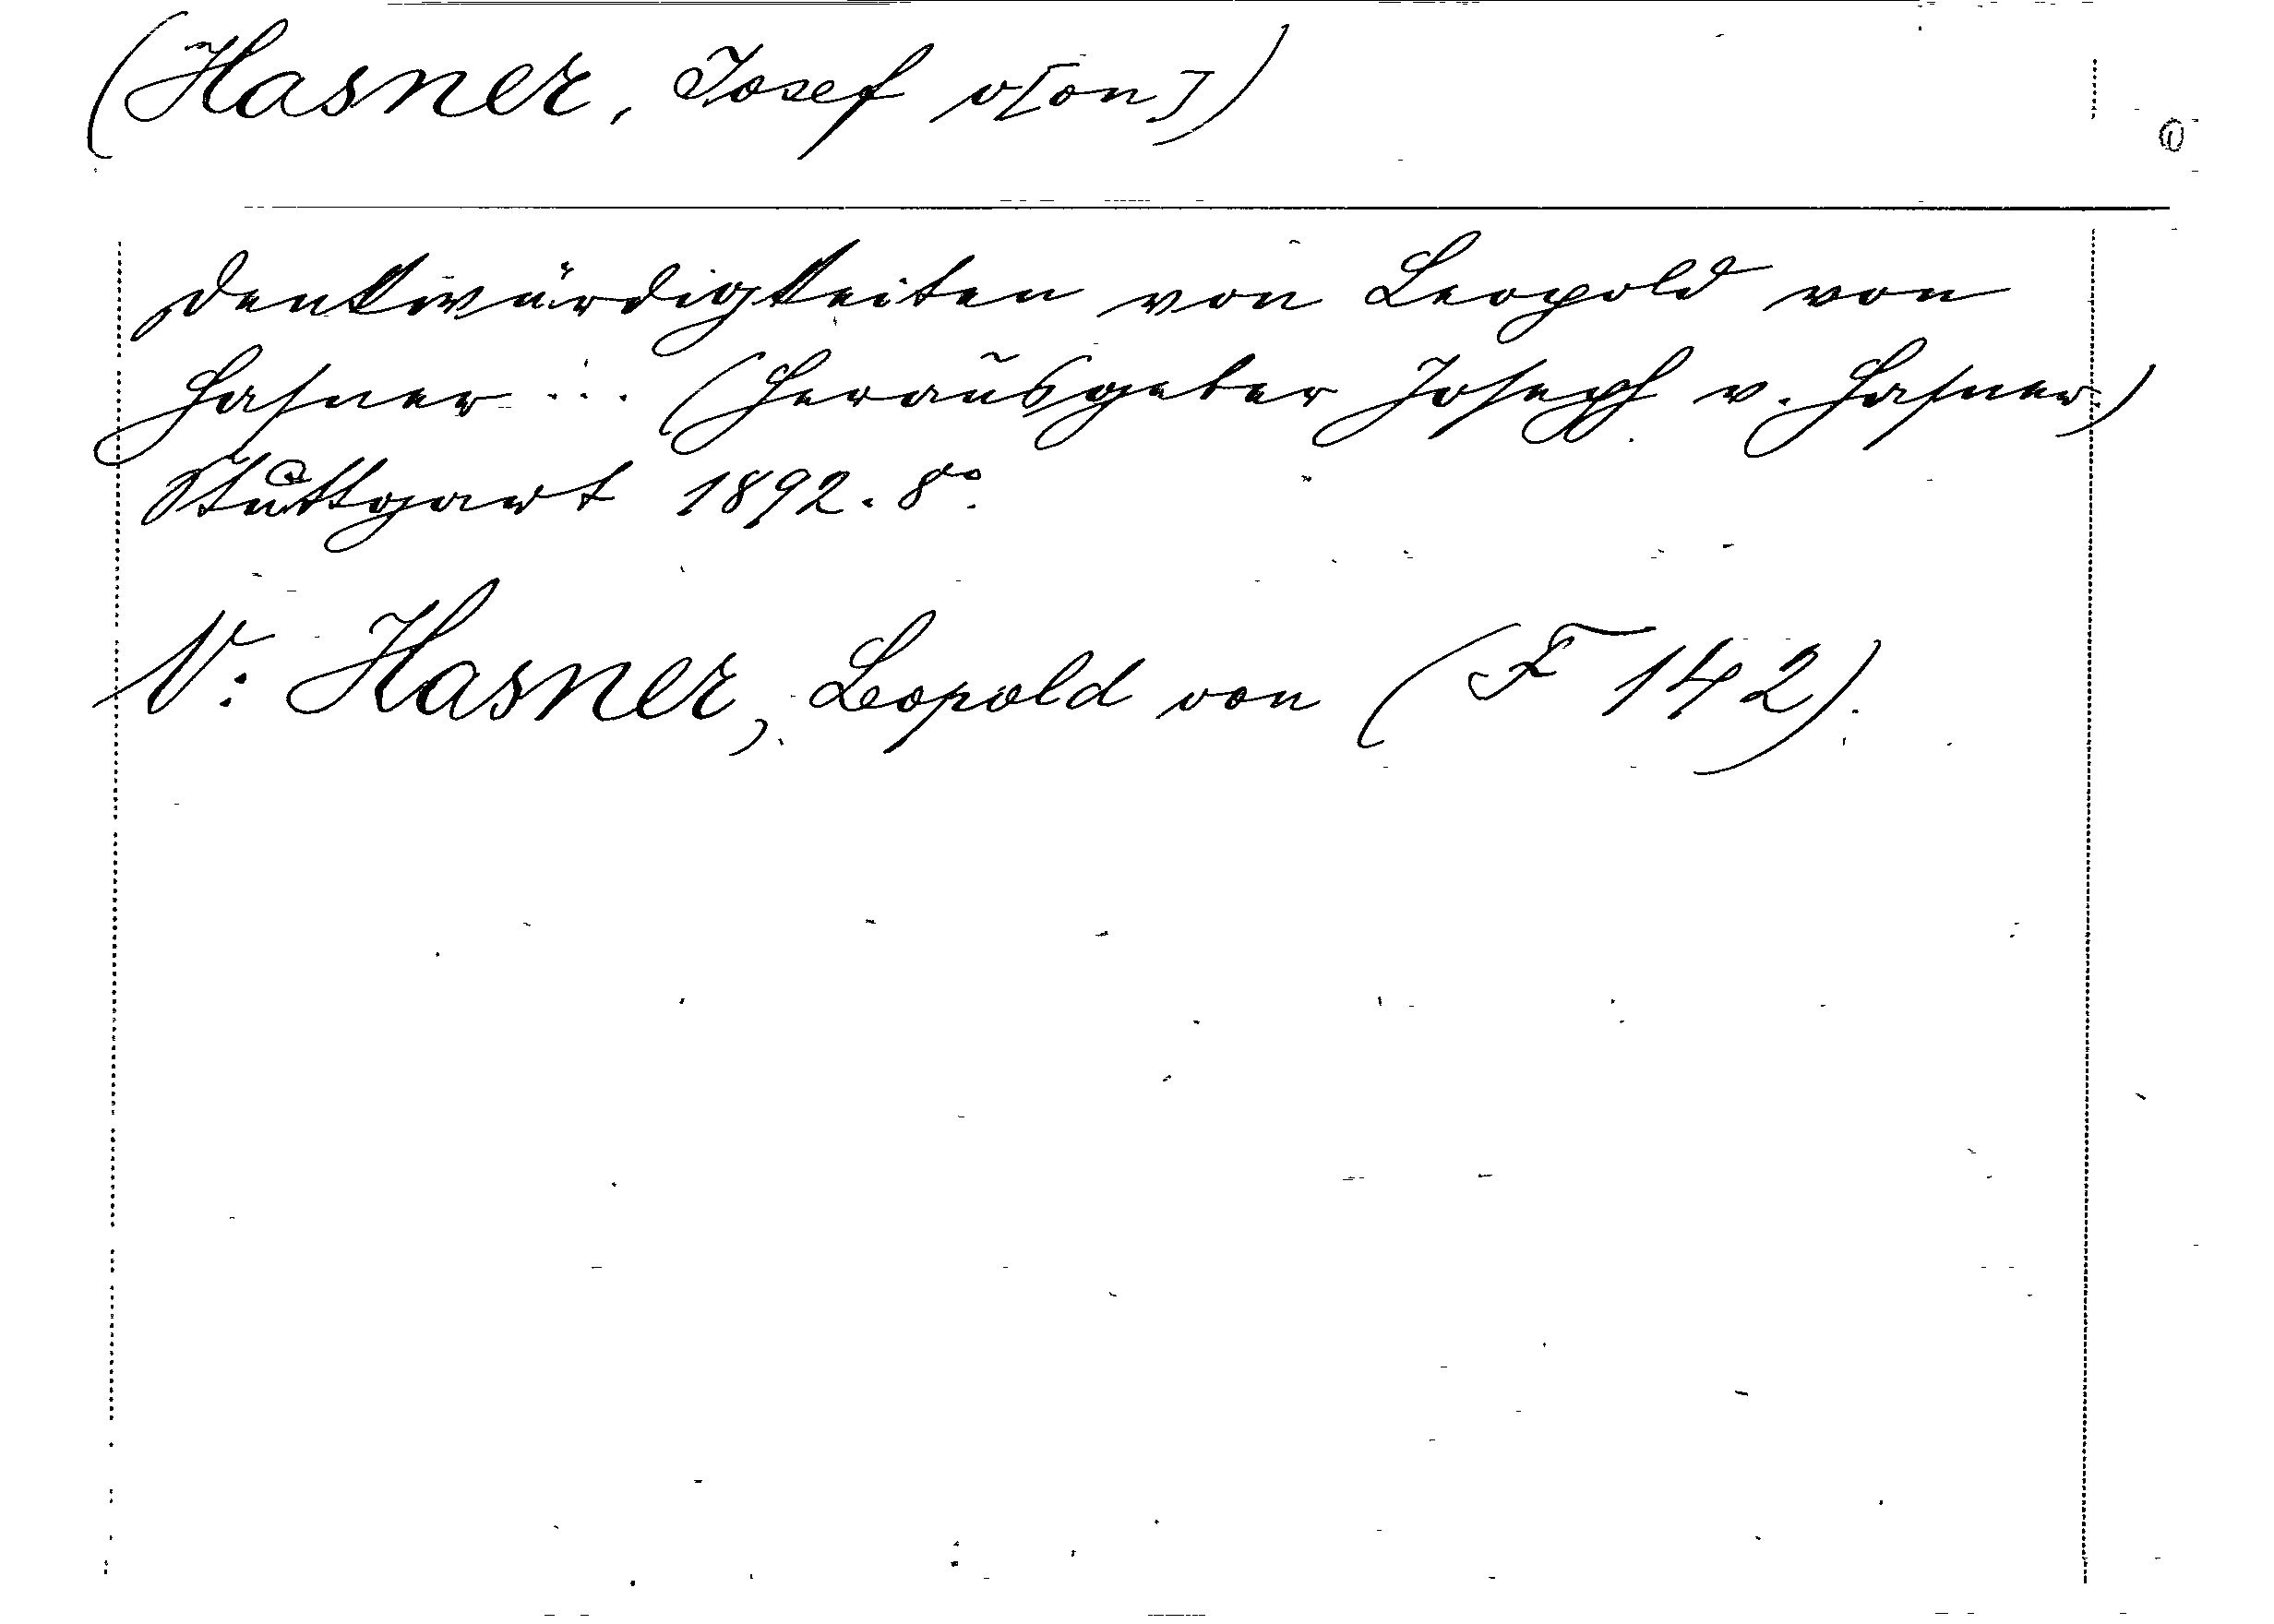 (Hasner, Josef v[on])
Denkwürdigkeiten von Leopold von
Hasner ... (Herausgeber Joseph v. Hasner)
Stuttgart 1892. 8°.
V: Hasner, Leopold von (F 142).